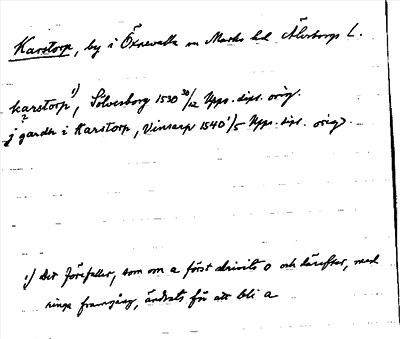 Karstorp, by i Öxnevalla sn Marks hd Älvsborgs L.
karstorp 1), Sölvesborg 1530 30/12 Upps. dipl. orig.
j garder i Karstorp, Vinsarp 1540 1/5 Upps. dipl. orig.
1) Det förefaller, som om a först skrivits o och därefter, med
ringa framgång, ändrats för att bli a